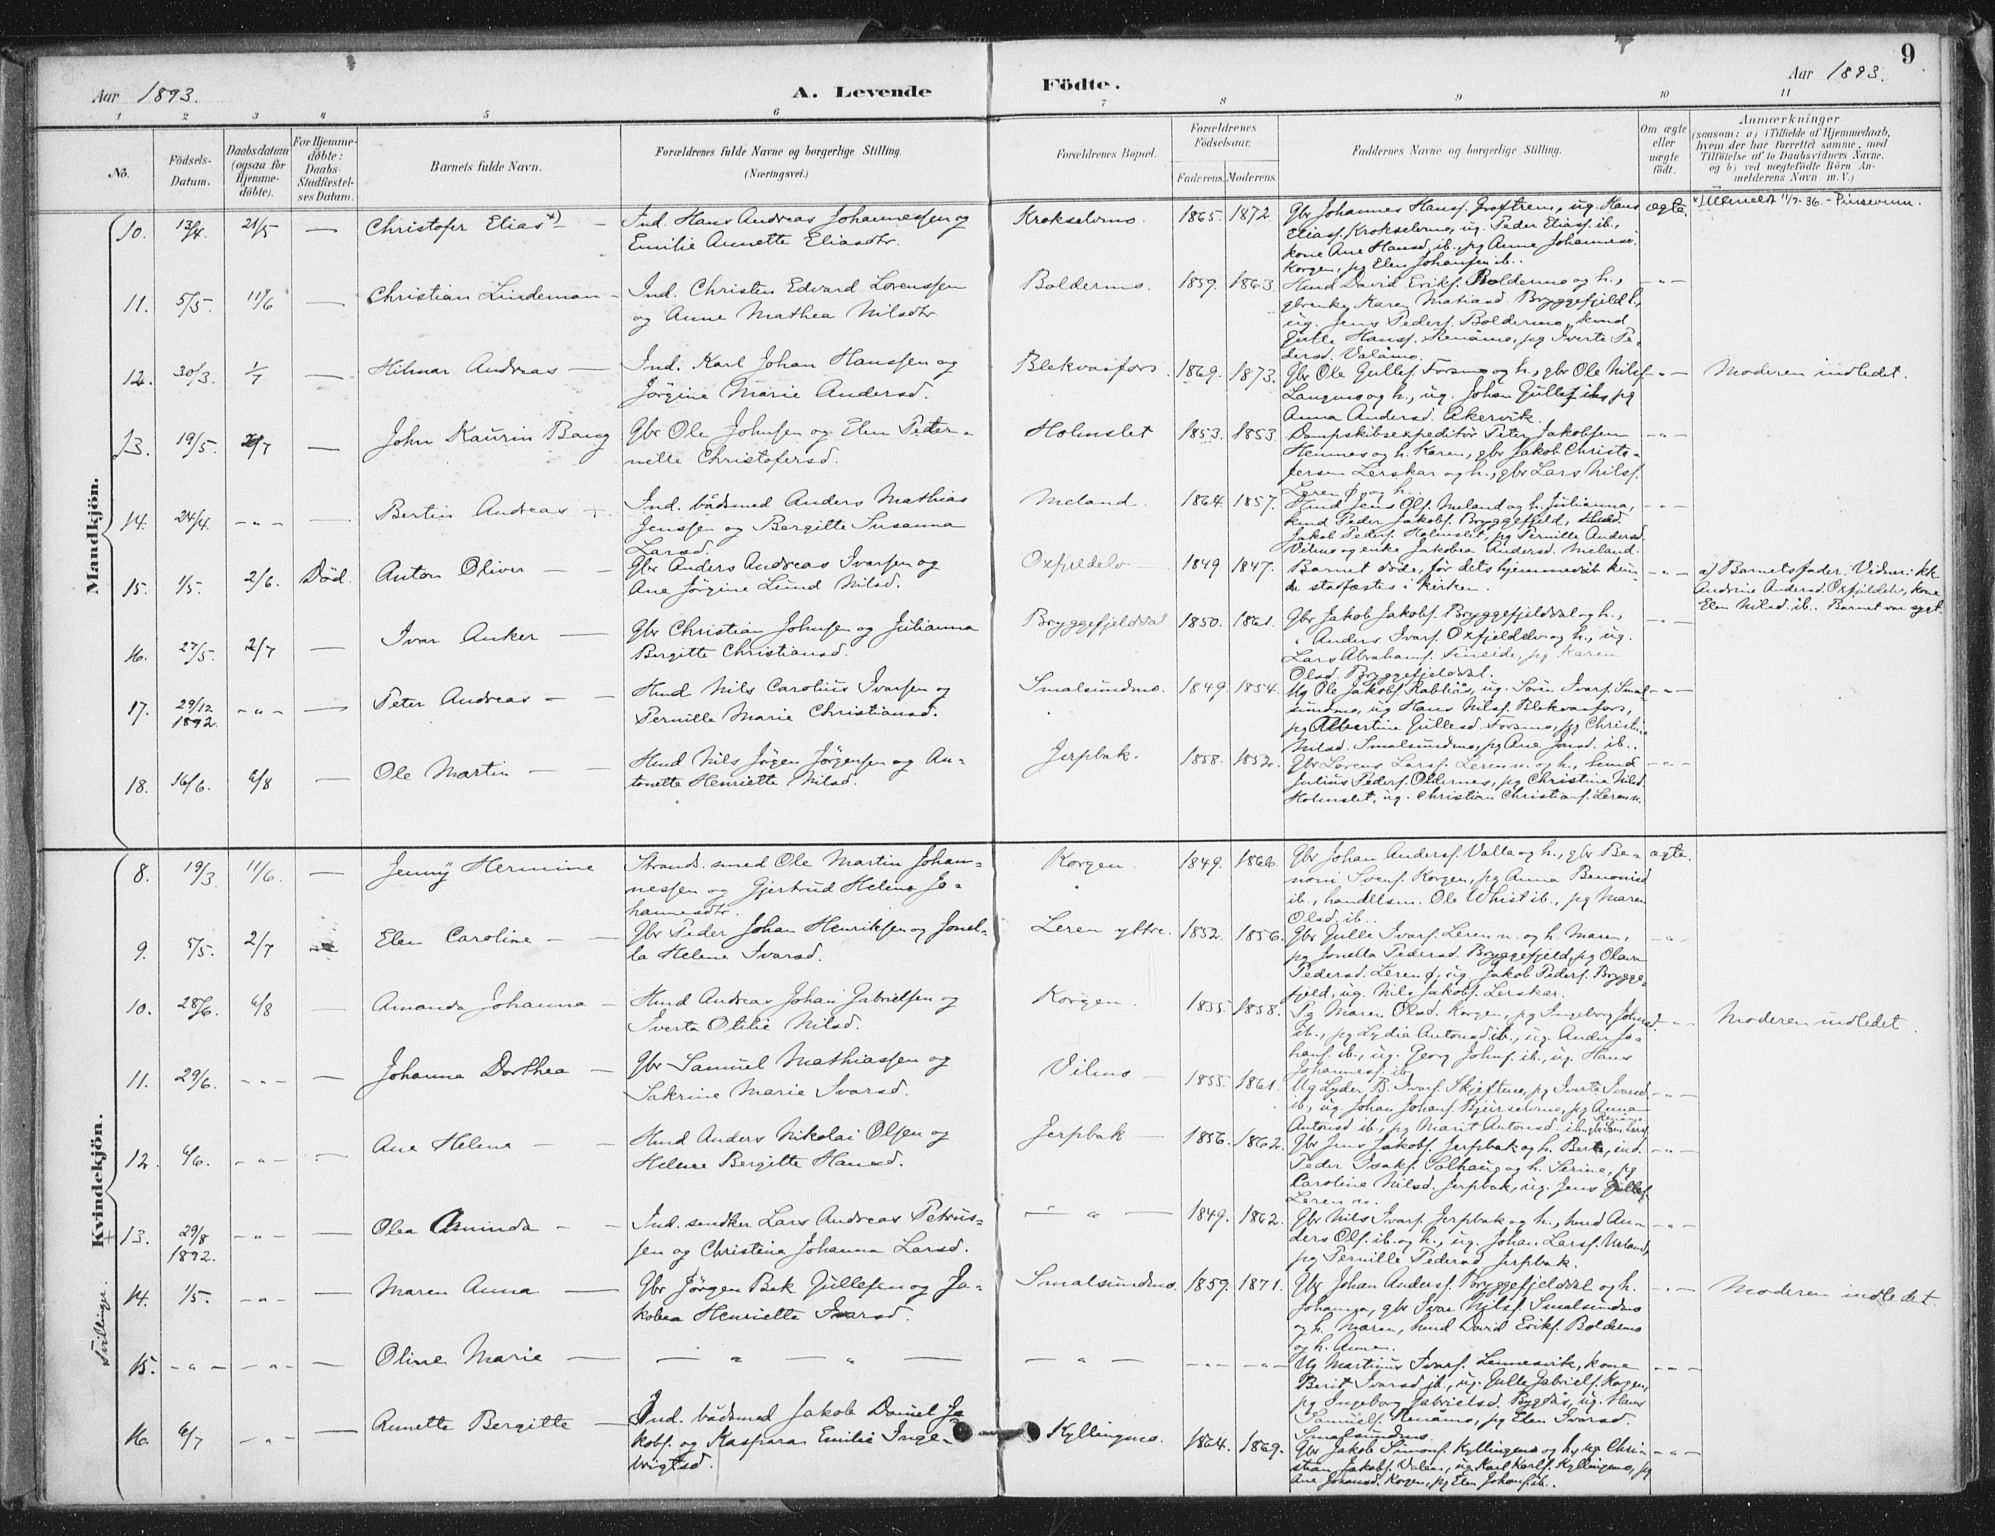 9
Aar 1893.
A. Levende
Födte.
Aar 1893.
1 2 3 4 5 6 7 8 9 10 11
No.
Födsels-
Datum.
Daabsdatum
(ogsaa for
Hjemme-
döbte).
For Hjemme-
döbte:
Daabs-
Stadfæstel-
ses Datum.
Barnets fulde Navn.
Forældrenes fulde Navne og borgerlige Stilling.
(Næringsvei.)
Forældrenes Bopæl.
Forældrenes
Födselsaar.
Faderens. Moderens.
Faddernes Navne og borgerlige Stilling.
Om ægte
eller
uægte
födt.
Anmærkninger
(saasom: a) i Tilfælde af Hjemmedaab,
hvem der har forrettet samme, med
Tilföielse af to Daabsvidners Navne,
og b) ved uægtefödte Börn An-
melderens Navn m. V.)
Mandkjön.
10. 13/4. 21/5 — Christofer Elias *) —
Ind. Hans Andreas Johannessen og
Emilie Annette Eliasdtr.
Krokselvmo. 1865. 1872.
Gbr Johannes Hansf. , ug. Hans
Eliasf. Krokselvmo, ug. Peder Eliasf. ib.,
kone Ane Hansd. ib., pg Anna Johannesd.
Korgen, pg Elen Johansen ib..
ægte.
* Utmeldt 11/7-36. - Pinsevenn.
11. 5/5. 11/6 — Christian Lindeman —
Ind. Christen Edvard Lorenssen
og Anne Mathea Nilsdtr
Boldermo. 1859. 1863.
Hmd David Erikf. Boldermo og h.,
gbrenke Karen Matiasd. Bryggefjeld,
ug. Jens Pedersf. Boldermo, hmd
Gulle Hansf. Renåmo, pg Iverte Pe-
dersd. Valåmo.
— " —
12. 30/3. 1/7 — Hilmar Andreas —
Ind. Karl Johan Hanssen og
Jörgine Marie Andersd.
Blekvasfors. 1869. 1873.
Gbr Ole Gullef. Forsmo og h., gbr Ole Nilsf
Langmo og h., ug. Johan Gullef ib, pg
Anna Andersd. Åkervik.
— " —
Moderen indledet.
13. 19/5. 2/7 — John Kaurin Bang
Gbr Ole Johnsen og Elen Peter-
nelle Christofersd.
Holmslet 1853. 1853.
Dampskibsexpeditör Peter Jakobsen
Hemnes og h. Karen, gbr Jakob Christo-
fersen Lerskar og h., gbr Lars Nilsf.
Leren Ø og h.
— " —
14. 24/4. — " — — Bertin Andreas
Ind. bådsmed Anders Mathias
Jenssen og Bergitte Susanna
Larsd.
Meland. 1864. 1857.
Hmd Jens Olf. Meland og h. Julianna,
hmd Peder Jakobf. Bryggefjeld, hmd
Jakob Pedersf. Holmslet, pg Pernille Andersd.
Vilmo og enke Jakobea Andersd. Meland.
— " —
15. 1/5. 2/6. Död. Anton Oliver —
Gbr Anders Andreas Ivarsen og
Ane Jörgine Lund Nilsd.
Oxfjeldelv — 1849 1847.
Barnet döde, för dets hjemmedåb kun-
de stadfæstes i kirken.
— " —
a) Barnets fader. Vidner: kk
Andrine Andersd. Oxfjeldelv, kone
Elen Nilsd. ib. Barnet var sygt.
16. 27/5. 2/7 — Ivar Anker —
Gbr Christian Johnsen og Julianna
Bergitte Christiansd.
Bryggefjelddal 1850. 1861.
Gbr Jakob Jakobf. Bryggefjelddal og h.,
" Anders Ivarf. Oxfjeldelv og h., ug.
Lars Abrahamf. Fineide, pg Karen
Olsd. Bryggefjelddal.
— " —
17. 29/12
1892. — " — — Peter Andreas —
Hmd Nils Carolius Ivarsen og
Pernille Marie Christiansd.
Smalsundmo. 1849. 1854.
Ug Ole Jakobf. Rabliås, ug. Sören Ivarf. Smal-
sundmo, ug Hans Nilsf. Blekvasfors,
pg Albertina Gullesd. Forsmo, pg Christine
Nilsd. Smalsundmo, pg Ane Jonsd. ib..
— " —
18. 16/6. 6/8 — Ole Martin —
Hmd Nils Jörgen Jörgensen og An-
tonette Henriette Nilsd.
Jerpbak. 1858. 1852.
Gbr Lorens Larsf. Leren n. og h., hmd
Julius Pedersf. Oldernes, pg Christine Nilsd.
Holmslet, ug. Christian Christianf. Leren n.
— " —
Kvindekjön.
8. 19/3 11/6. — Jenny Hermine
Strands. smed Ole Martin Johan-
nessen og Gjertrud Helene Jo-
hannesdtr.
Korgen. 1849. 1866.
Gbr Johan Andersf. Valla og h., gbr Be-
noni Svenf. Korgen, pg Anna Benonisd
ib., handelsm. Ole Whist ib., pg Maren
Olsd. ib..
ægte.
9. 5/5. 2/7 Elen Caroline —
Gbr Peder Johan Henriksen og Jonel-
la Helene Ivarsd.
Leren yttre. 1852. 1856.
Gbr Gulle Ivarf. Leren n. og h. Maren,
pg Jonetta Pedersd. Bryggefjeld, pg Olava
Pedersd. Leren ö, ug. Jakob Pedersf. Brygge-
fjeld, ug. Nils Jakobf. Lerskar.
— " —
10. 28/6. 6/8 — Amanda Johanna —
Hmd Andreas Johan Gabrielsen og
Iverta Otilie Nilsd.
Korgen. 1855. 1858.
Pg Maren Olsd. Korgen, pg Ingeborg Johnsd.
ib., pg Lydia Antonsd. ib., ug. Anders Jo-
hanf. ib., ug. Georg Johnf. ib., ug. Hans
Johannesf. ib.
— " —
Moderen indledet.
11. 29/6. — " — — Johanna Dorthea —
Gbr Samuel Mathiassen og
Sakrine Marie Ivarsd.
Vilmo — 1855. 1861.
Ug Lyder B. Ivarf. Skjeftmo, pg Iverta Ivarsd.
ib., ug. Johan Johanf. Bjurselvmo, pg Anna
Antonsd ib., pg Marit Antonsd. ib.,
— " —
12. 6/6. — " — — Ane Helene —
Hmd Anders Nikolai Olsen og
Helene Bergitte Hansd.
Jerpbak — 1856. 1862.
Gbr Jens Jakobf. Jerpbak og h. Berte, ind.
Peder Isakf. Solhaug og h. Serine, pg
Caroline Nilsd. Jerpbak, ug. Jens Gullef.
Leren n.
— " —
13. 29/8
1892. — " — — Olea Aminda —
Ind. snedker Lars Andreas Petrus-
sen og Christine Johanna Larsd.
— " — 1849. 1862.
Gbr Nils Ivarf. Jerpbak og h., hmd An-
ders Olf. ib. og h., ug. Johan Larsf. Meland,
pg Pernille Pedersd Jerpbak.
— " —
Tvillinger.
14. 1/5. — " — — Maren Anna —
Gbr Jörgen Bek Gullesen og Ja-
kobea Henriette Ivarsd.
Smalsundmo. 1859. 1871.
Gbr Johan Andersf. Bryggefjelddal og h.
Johanna, gbr Ivar Nilsf. Smalsundmo
og h. Maren, hmd David Erikf. Boldermo
og h. Anne.
— " —
Moderen indledet.
15. — " — — " — — Oline Marie —
— " — " —
— " — — " — — " —
Ug Martinus Ivarf. Lennesvik, kone
Berit Ivarsd. ib., ug. Gulle Gabrielf. Korgen,
pg Ingeborg Gabrielsd. Bygdås, ug. Hans
Samuelf. Renåmo, pg Elen Ivarsd.
Smalsundmo.
— " —
16. 6/7 — " — — Annette Bergitte —
Ind. bådsmed Jakob Daniel Ja-
kobf. og Kaspara Emilie Inge-
brigtsd.
Kyllingmo. 1864. 1869.
Gbr Jakob Simonf. Kyllingmo og h., ug Chri-
stian Jakobf. Valaen, ug Karl Karlf. Kyllingmo, pg
Ane Johansd. Korgen, pg Elen Johanf. ib..
— " —